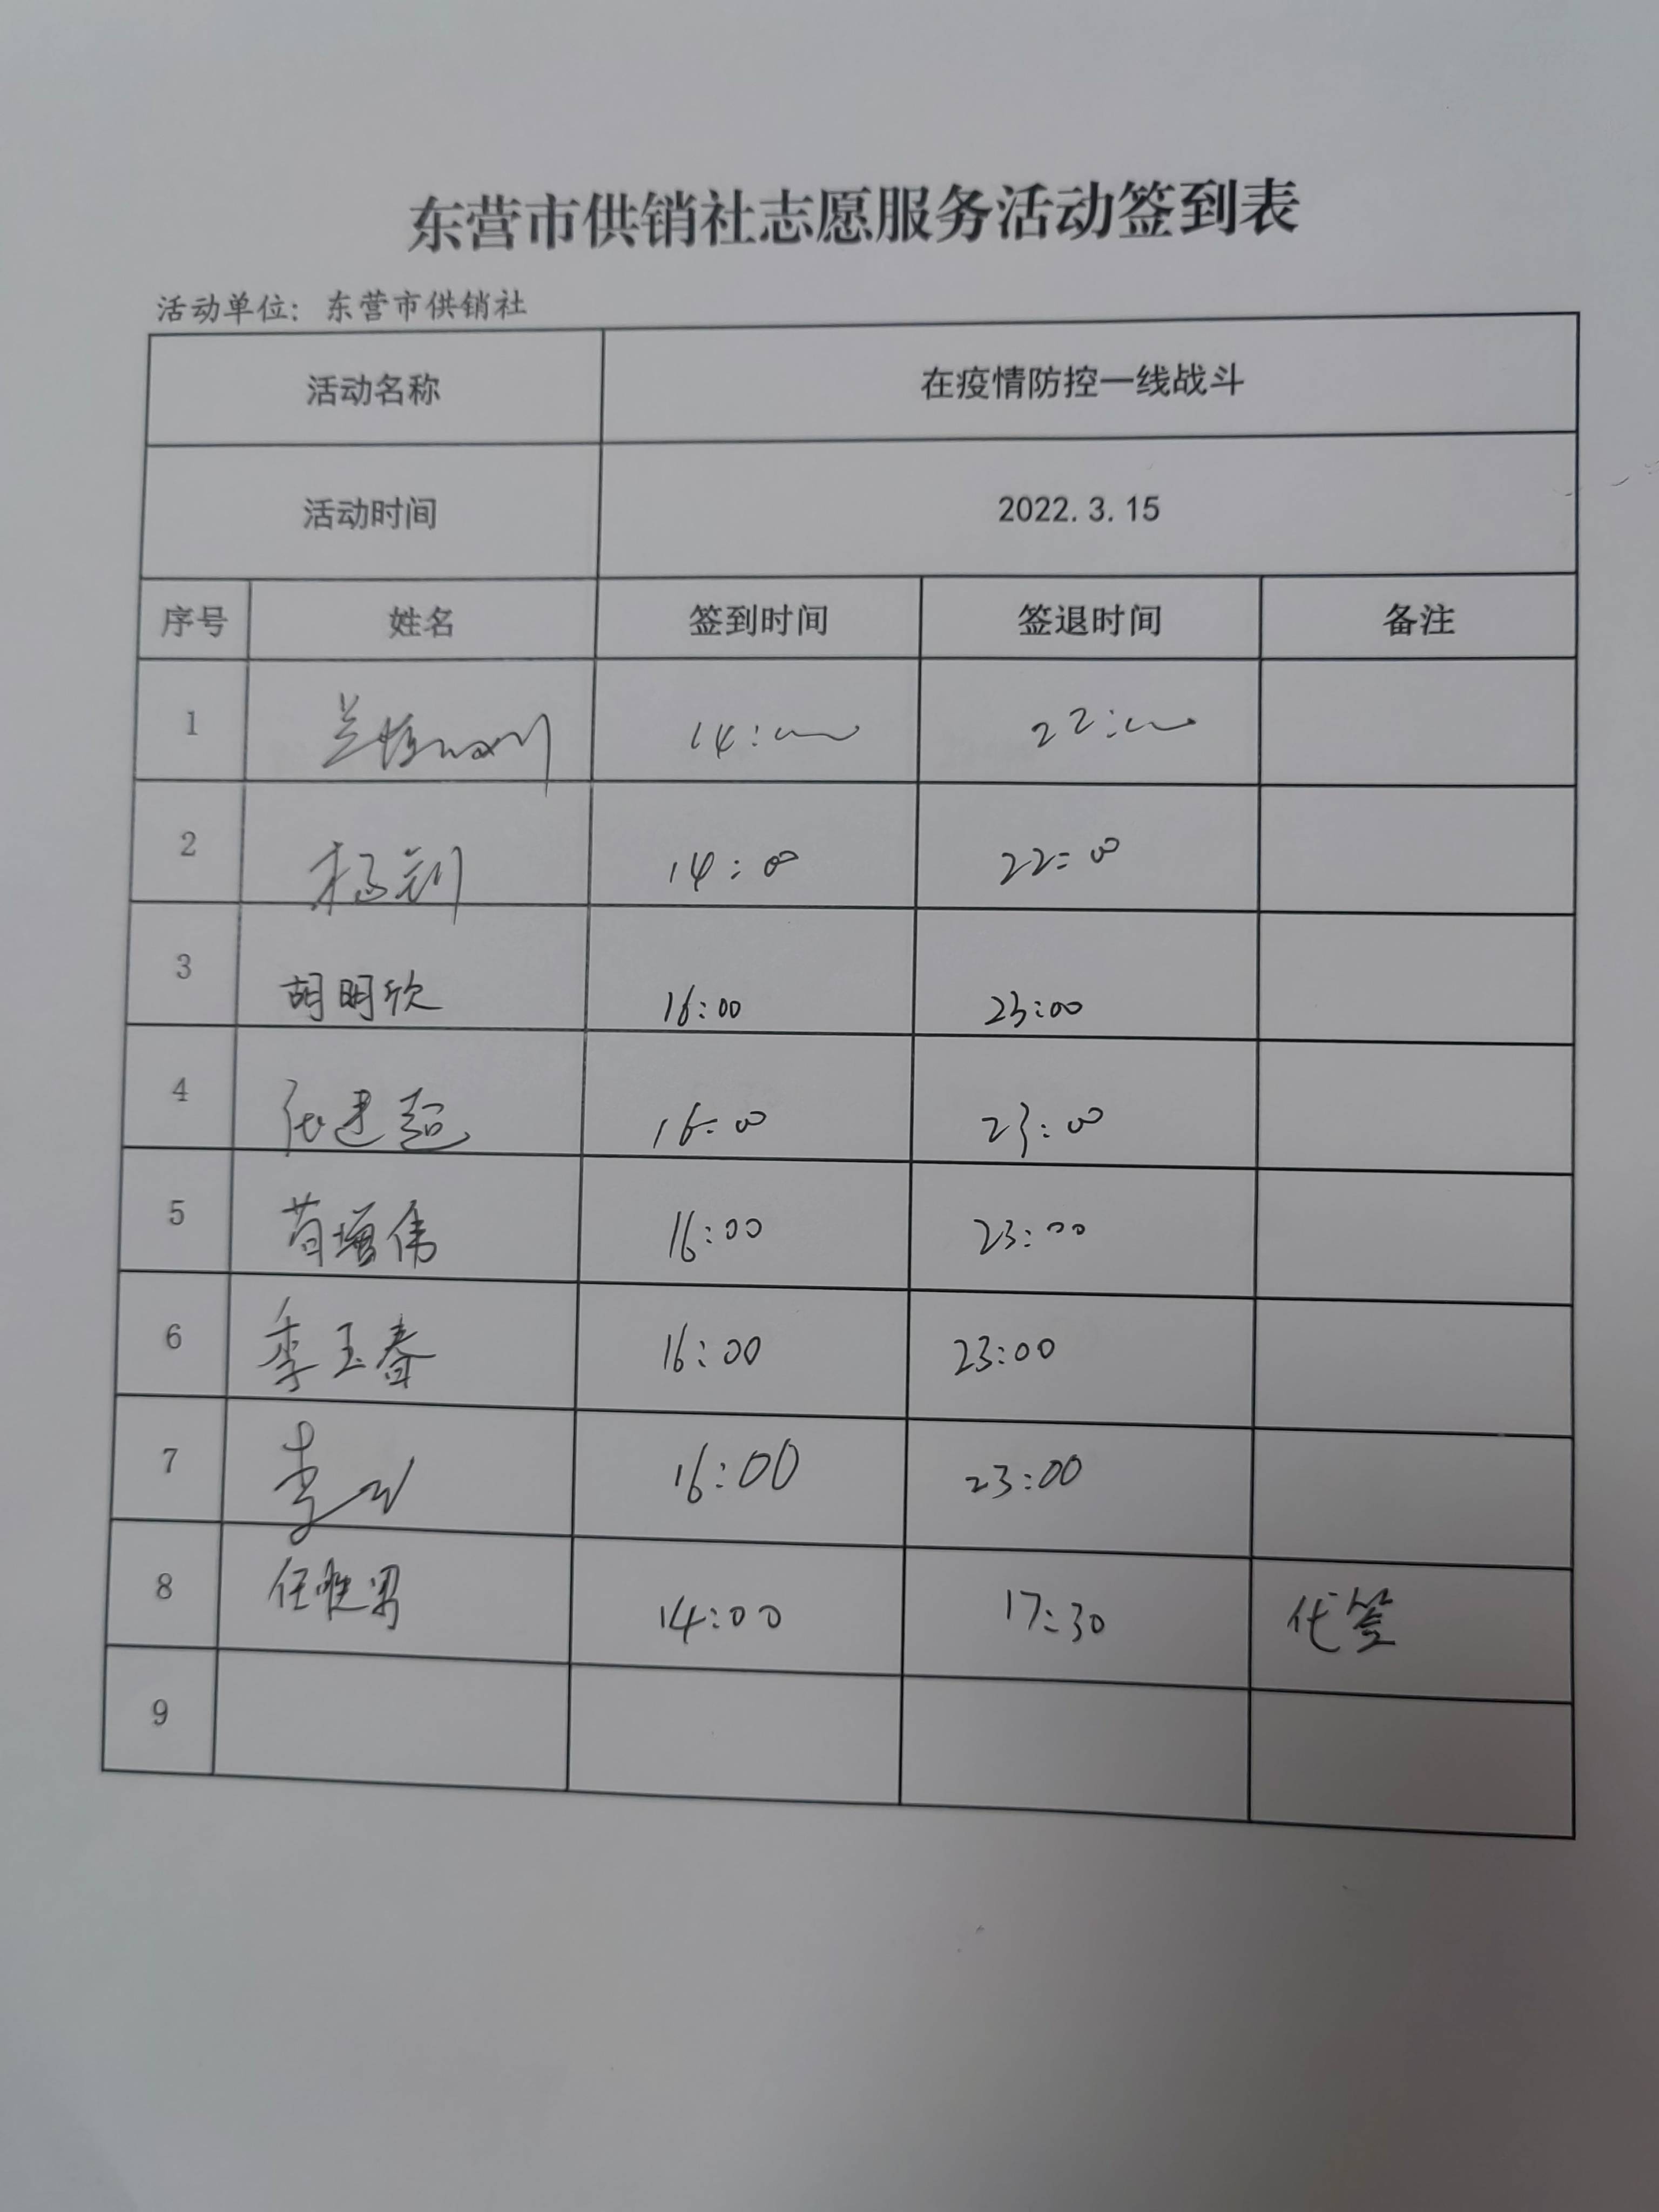 东营市供销社志愿服务活动签到表
活动单位：东营市供销社
活动名称 在疫情防控一线战斗
活动时间 2022.3.15
序号 姓名 签到时间 签退时间 备注
1 14:00 22:00
2 杨刘 14:00 22:00
3 胡明欣 16:00 23:00
4 张建超 16:00 23:00
5 苜增伟 16:00 23:00
6 季玉春 16:00 23:00
7 李 16:00 23:00
8 任唯男 14:00 17:30 代签
9